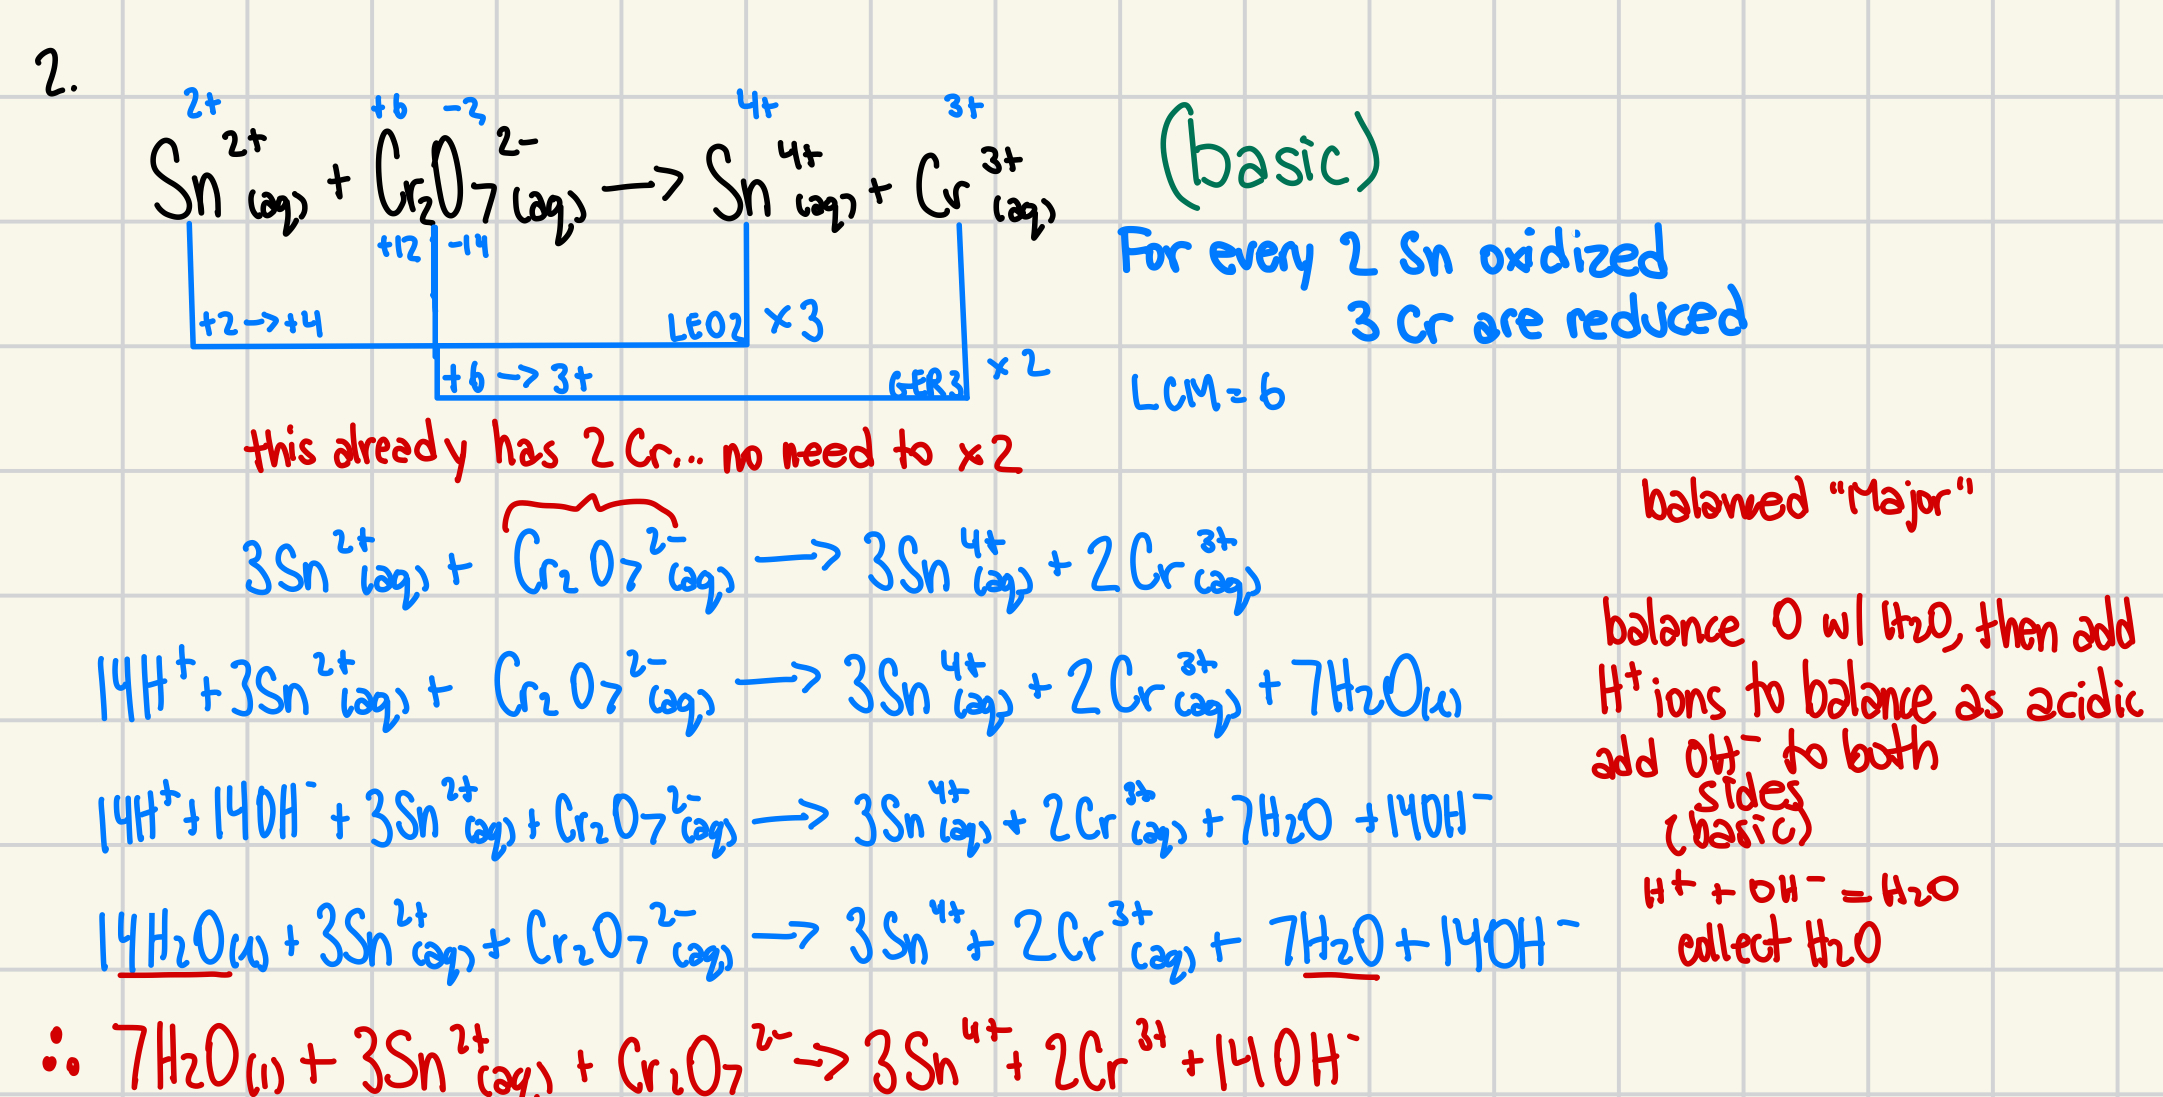 2.
2+ +6 -2 4+ 3+
Sn²⁺(aq) + Cr₂O₇²⁻(aq) → Sn⁴⁺(aq) + Cr³⁺(aq) (basic)
+12 -14
For every 2 Sn oxidized
3 Cr are reduced
+2 → +4 LEO2 x3
+6 → 3+ GER3 x2
LCM = 6
this already has 2 Cr... no need to x2
balanced "Major"
3Sn²⁺(aq) + Cr₂O₇²⁻(aq) → 3Sn⁴⁺(aq) + 2Cr³⁺(aq)
balance O w/ H₂O, then add
H⁺ ions to balance as acidic
14H⁺ + 3Sn²⁺(aq) + Cr₂O₇²⁻(aq) → 3Sn⁴⁺(aq) + 2Cr³⁺(aq) + 7H₂O(l)
add OH⁻ to both
sides
(basic)
14H⁺ + 14OH⁻ + 3Sn²⁺(aq) + Cr₂O₇²⁻(aq) → 3Sn⁴⁺(aq) + 2Cr³⁺(aq) + 7H₂O + 14OH⁻
H⁺ + OH⁻ = H₂O
collect H₂O
14H₂O(l) + 3Sn²⁺(aq) + Cr₂O₇²⁻(aq) → 3Sn⁴⁺ + 2Cr³⁺(aq) + 7H₂O + 14OH⁻
∴ 7H₂O(l) + 3Sn²⁺(aq) + Cr₂O₇²⁻ → 3Sn⁴⁺ + 2Cr³⁺ + 14OH⁻